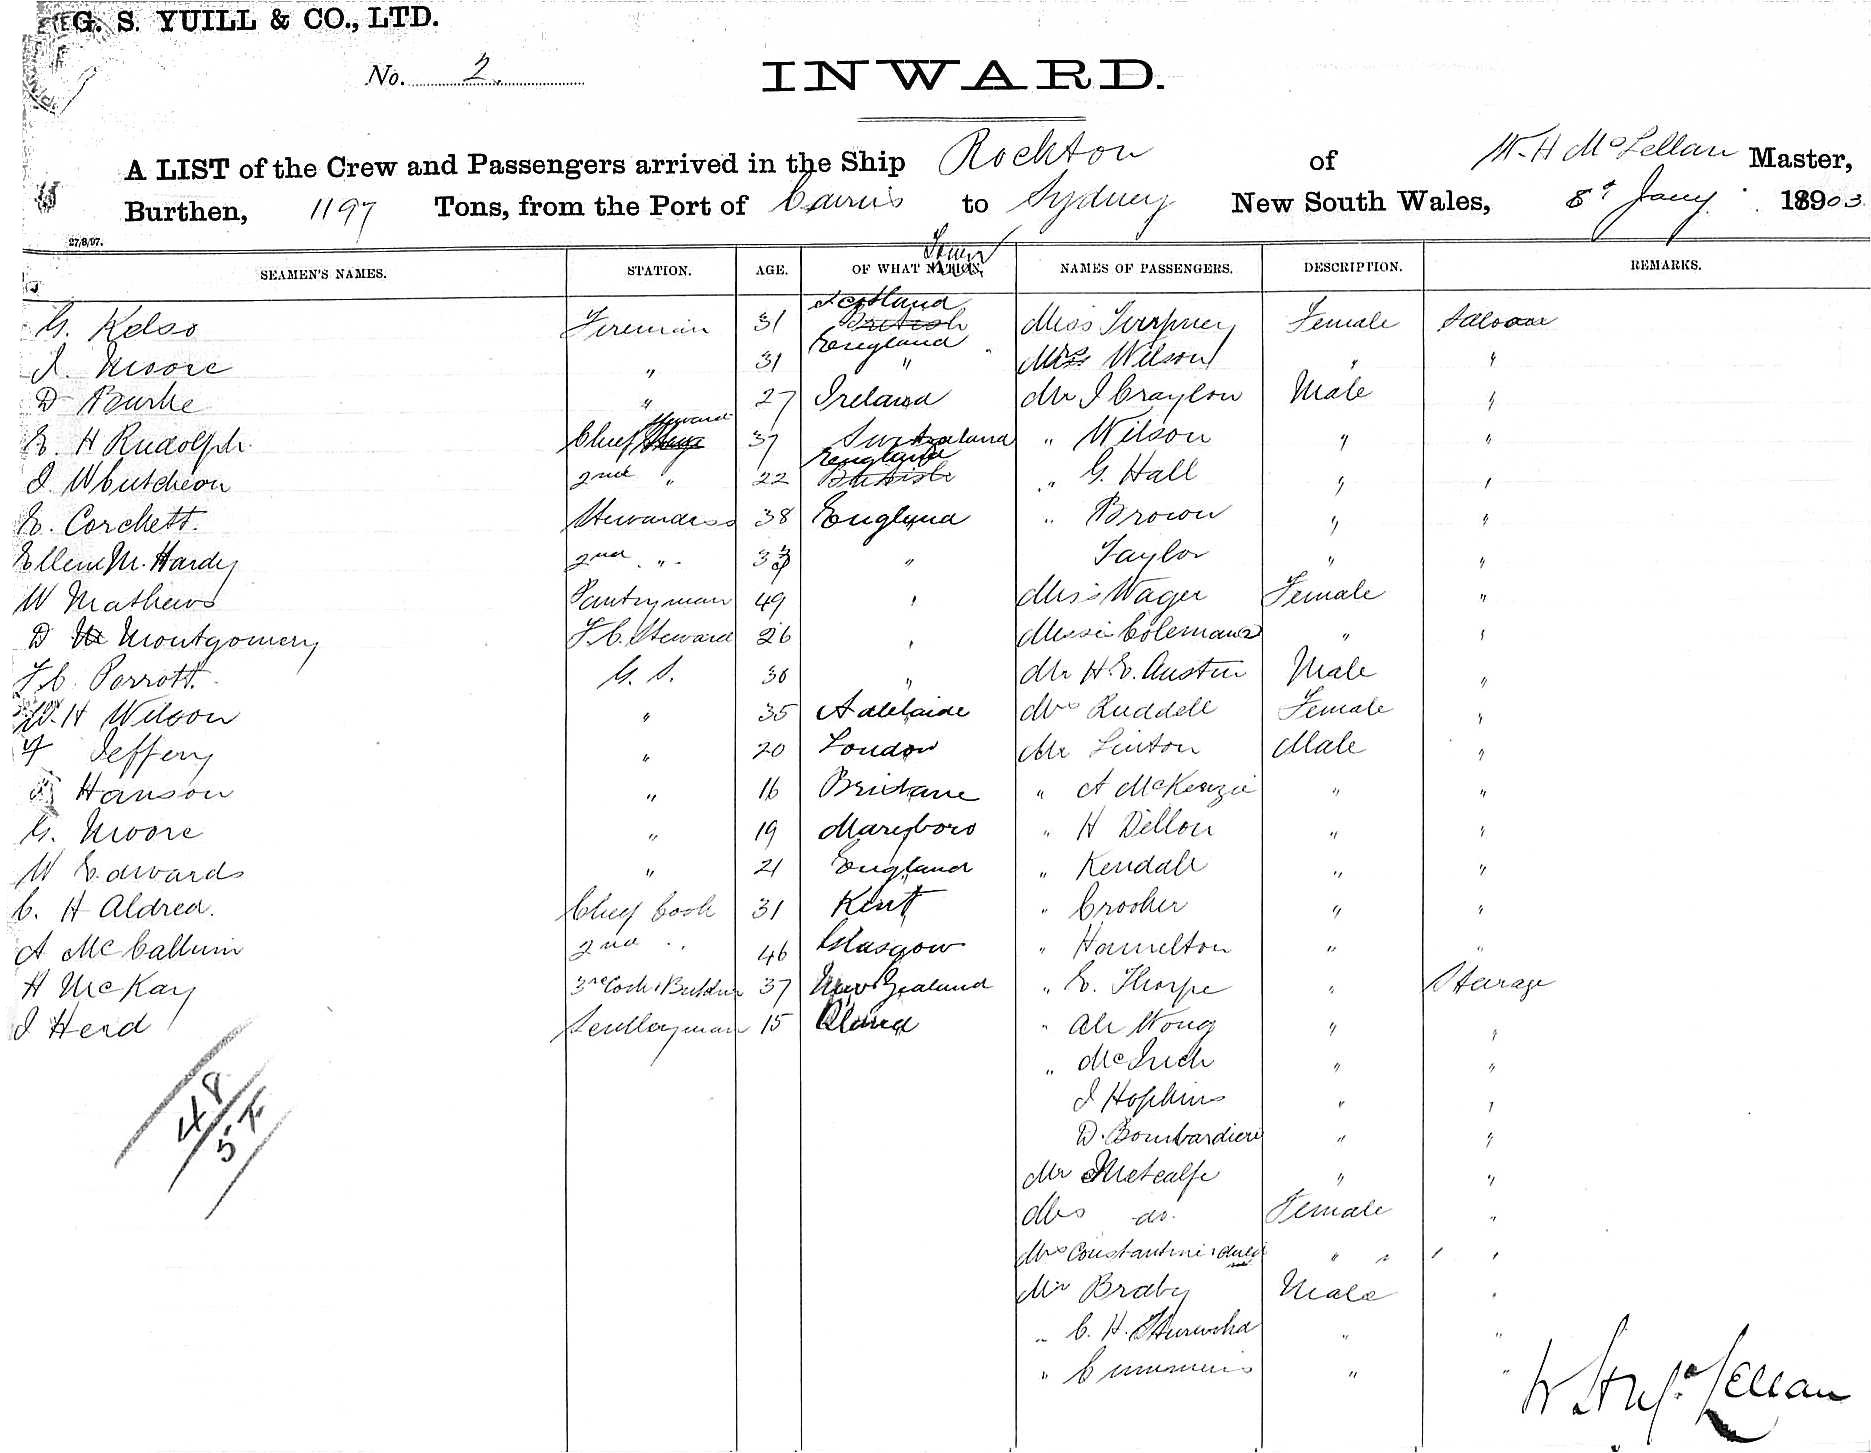 G. S. YUILL & CO., LTD.
No. 2
INWARD.
A LIST of the Crew and Passengers arrived in the Ship Rockton of W. H McLellan Master,
Burthen, 1197 Tons, from the Port of Cairns to Sydney New South Wales, 8th Jany 18903
27/8/97.
SEAMEN'S NAMES. STATION. AGE. OF WHAT NATION. NAMES OF PASSENGERS. DESCRIPTION. REMARKS.
G. Kelso Fireman 31 Scotland British Miss Female Saloon
J. Moore " 31 England " Mrs Wilson " "
D Burke " 27 Ireland Mr J Craylon Male "
E. H Rudolph Chief Steward 37 Switzaland " Wilson " "
J. Wcutcheon 2nd " 22 England British " G. Hall " "
E. Corchett. Stewardess 38 England " Brown " "
Ellen M. Hardy 2nd " 33 " Taylor " "
W Mathews Pantryman 49 " Miss Wager Female "
D Montgomery F. C. Steward 26 " Misses Colemans " "
F. C. Porrott. G. S. 36 " Mr H. E. Austin Male "
W. H Wilson " 35 Adelaide Mrs Ruddell Female "
F Jeffery " 20 London Mr Linton Male "
Hanson " 16 Brisbane " A McKenzie " "
G. Moore " 19 Maryboro " H Dillon " "
W Edwards " 21 England " Kendall " "
C. H Aldred. Chief Cook 31 Kent " Crooker " "
A McCallum 2nd " 46 Glasgow " Hamelton " "
H McKay 3rd Cook & Butcher 37 New Zealand " E. Thorpe " Sterage
J Herd Sculleryman 15 " Ah Wong " "
" "  "
J Hopkins " "
D. Bombardieri " "
Mr Metcalfe " "
Mrs do. Female "
Mrs Constantini & " " " "
Mr Braby Male "
" C. H. " "
" Cummins " "
48
57
W. H McLellan